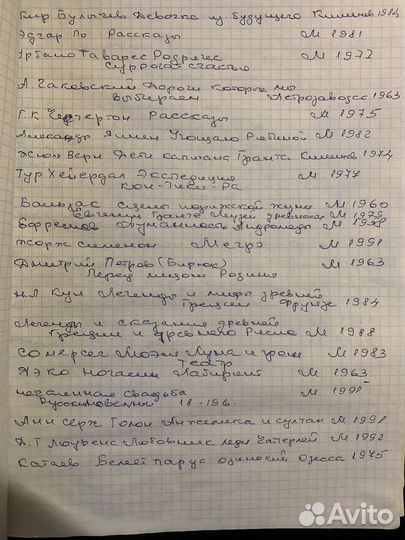 Кир Булычев Девочка из будущего Кишинев 1984
Эдгар По Рассказы М 1981
Урбано Таварес Родригес М 1977
Суррогат счастья
А. Чаковский Дороги которые мы
выбираем Петрозаводск 1963
Г. К Честертон Рассказы М 1975
Александр Яшин Угощаю рябиной М 1982
Жюль Верн Дети капитана Гранта Кишинев 1974
Тур Хейердал Экспедиция М 1977
Кон-Тики - Ра
Бальзак Сцены парижской жизни М 1960
Евгения Гранде Музеи древности М 1979
Ефремов Туманность Андромеды М
Жорж Сименон Мегрэ М 1991
Дмитрий Петров (Бирюк) М 1963
Перед лицом Родины
Н.А Кун Легенды и мифы древней
Греции Фрунзе 1984
Легенды и сказания древней
Греции и древнего Рима М 1988
Сомерсет Моэм Луна и грош М 1983
Театр
Яэко Ногами Лабиринт М 1963
Нечаянная Свадьба М 1991
Русские новеллы 18-19в.
Анн Серж Голон Анжелика и султан М 1991
Д. Г Лоуренс Любовник леди Чаттерлей М 1992
Катаев Белеет парус одинокий Одесса 1975
Avito